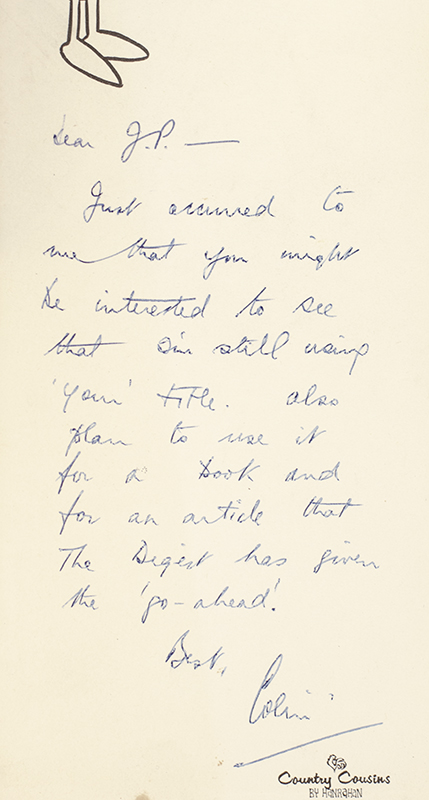 Dear J.P. —
Just occurred to
me that you might
be interested to see
that I'm still using
'your' title. Also
plan to use it
for a book and
for an article that
The Digest has given
the 'go-ahead'.
Best,
Colin
Country Cousins
BY HANRAHAN